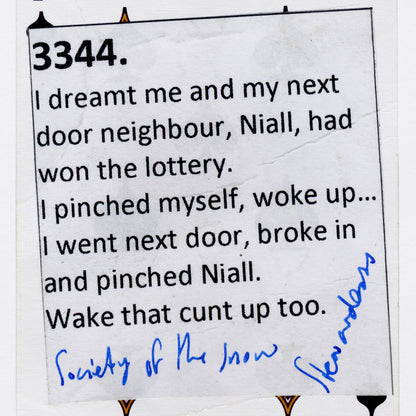 3344.
I dreamt me and my next
door neighbour, Niall, had
won the lottery.
I pinched myself, woke up...
I went next door, broke in
and pinched Niall.
Wake that cunt up too.
Society of the snow
Stewardess